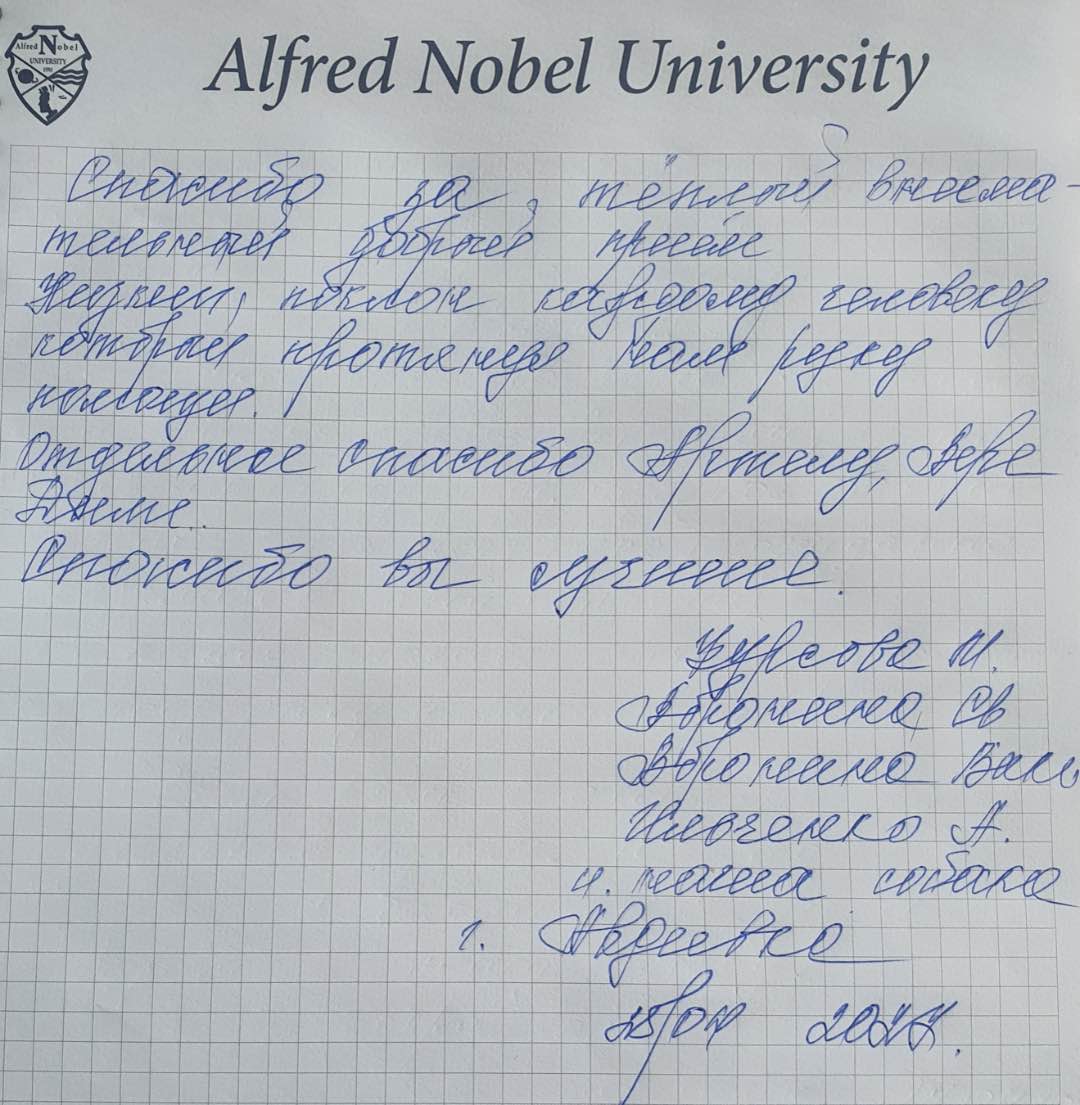 Alfred Nobel
UNIVERSITY
Alfred Nobel University
Спасибо за, тёплый внима-
тельный добрый приём
Низкий, поклон каждому человеку
который протянул нам руку
помощи.
Отдельное спасибо Артему, Вере
Диме.
Спасибо вы лучшие.
Курсова М.
Воронина Св
Воронина Вал
Ильченко А.
и. наша собака
г. Авдеевка